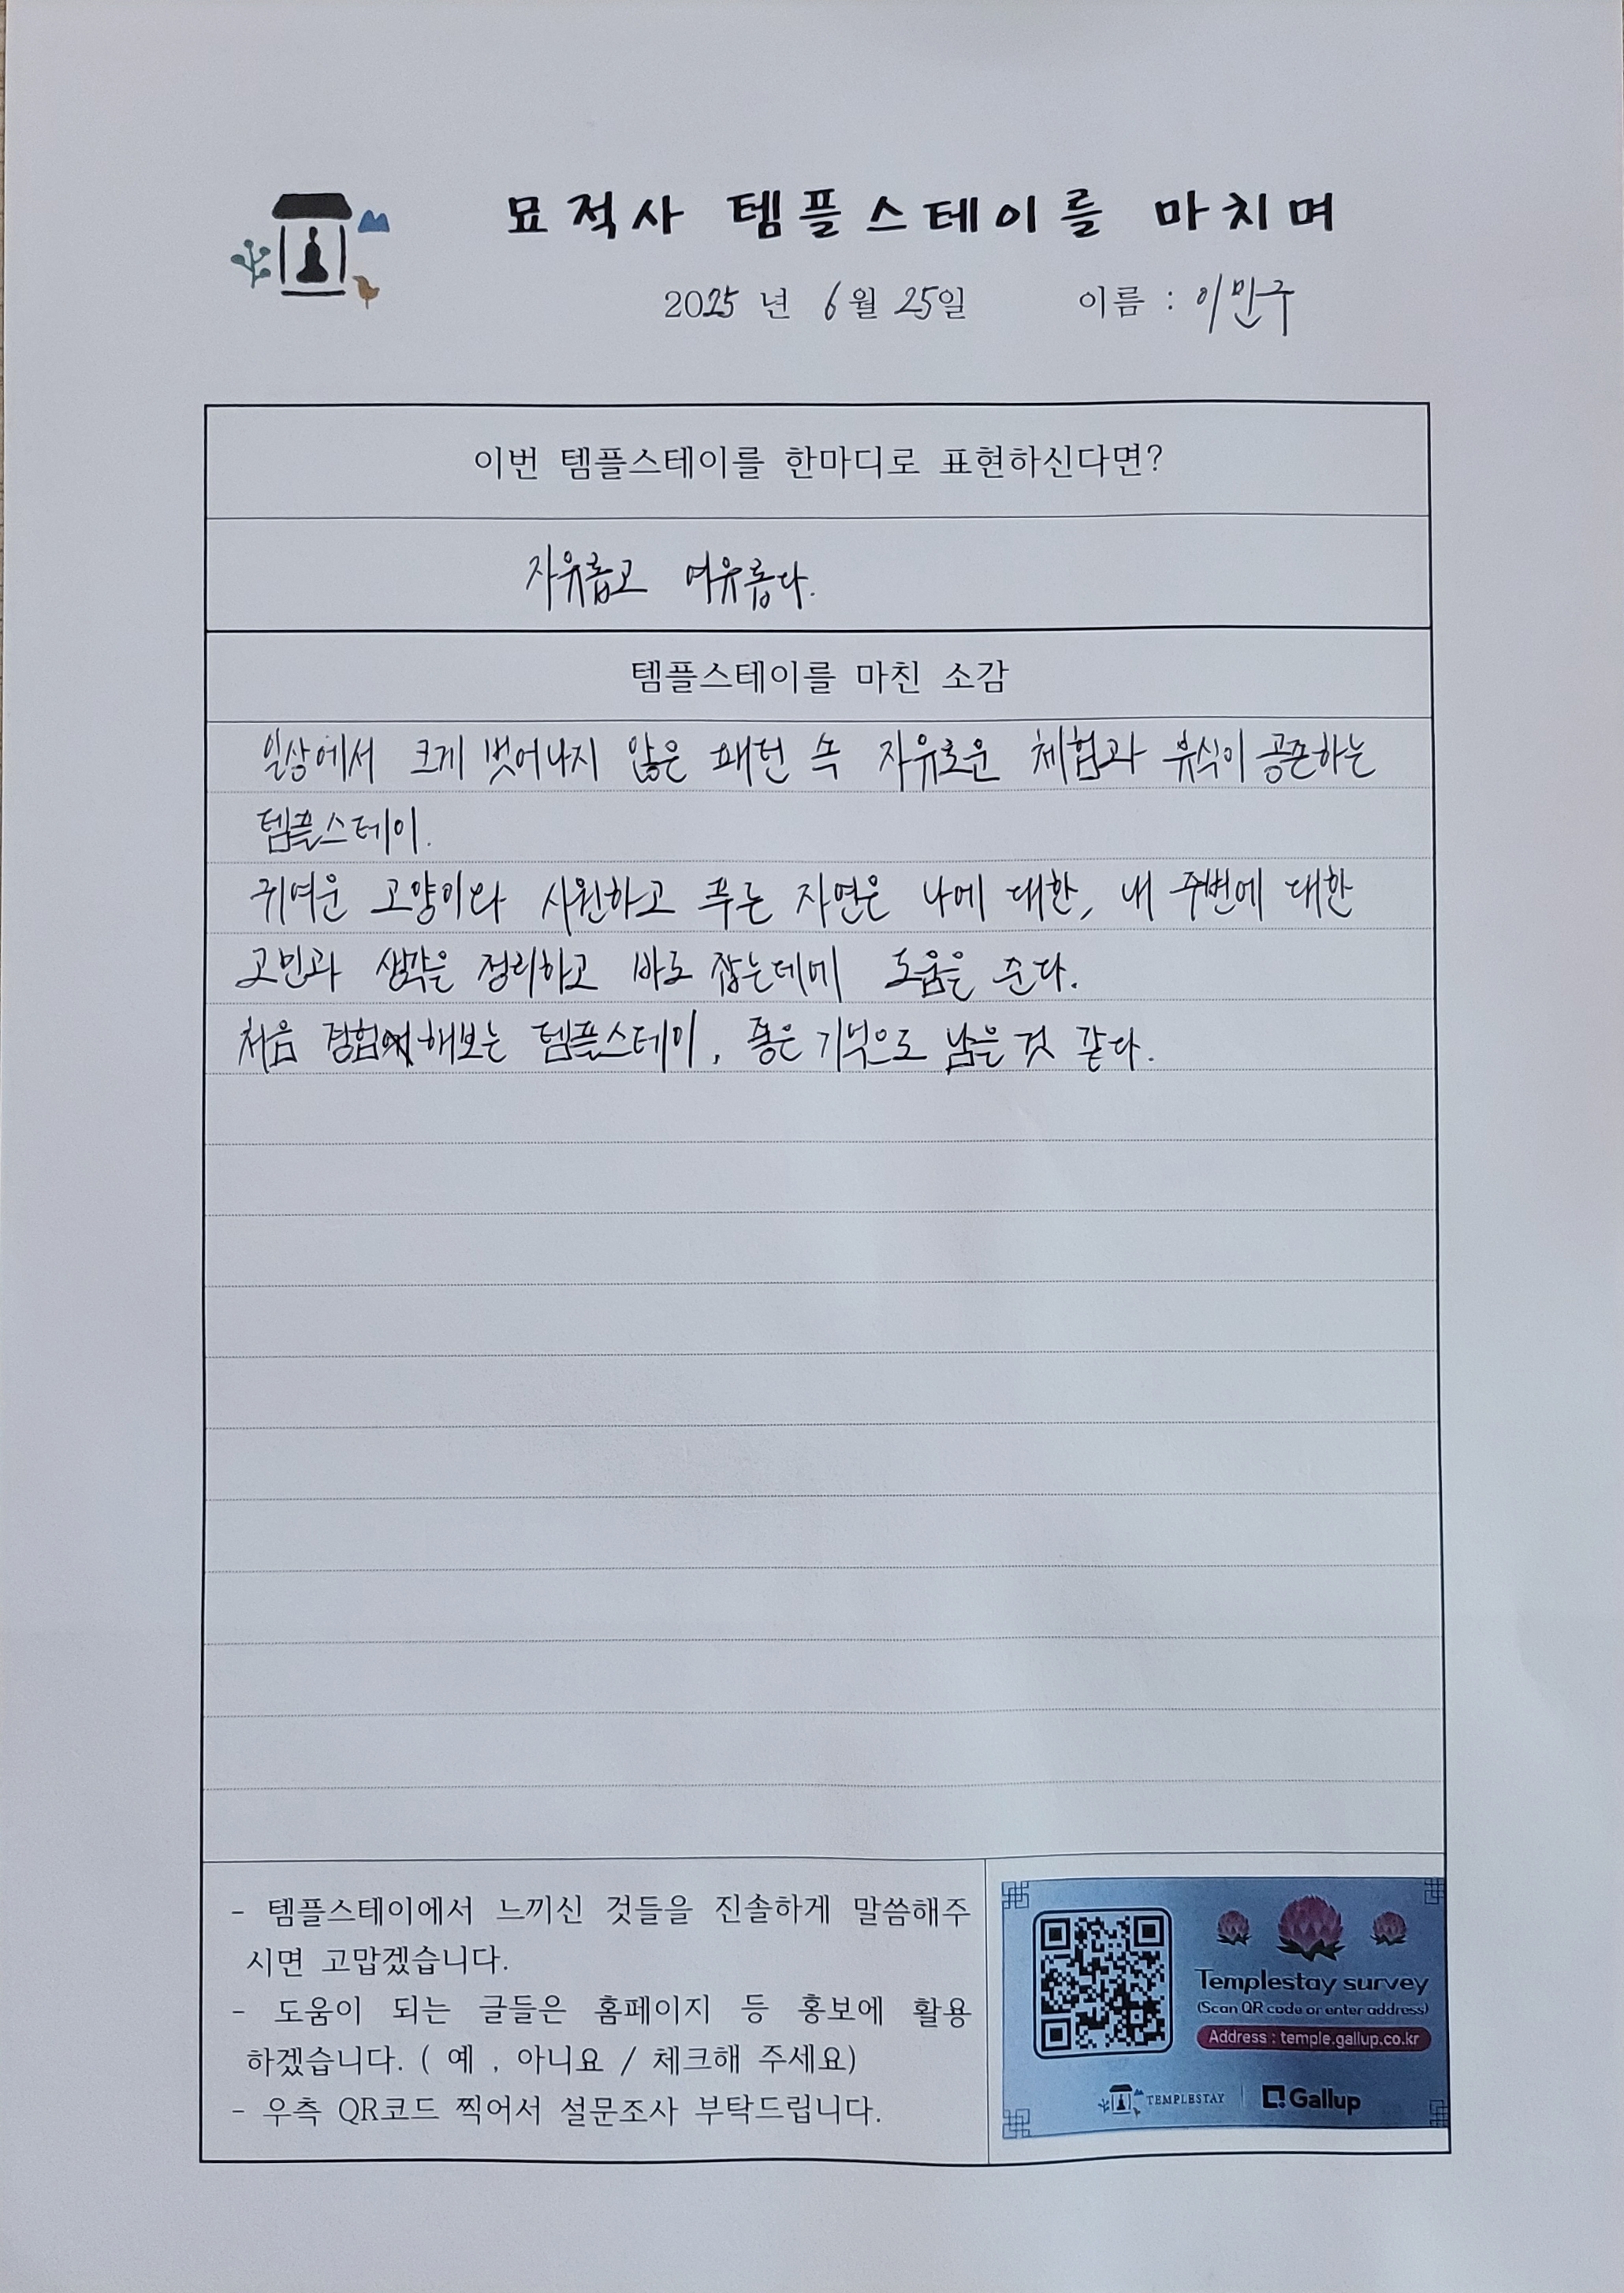 묘적사 템플스테이를 마치며
2025 년 6월 25일 이름 : 이민구
이번 템플스테이를 한마디로 표현하신다면?
자유롭고 여유롭다.
템플스테이를 마친 소감
일상에서 크게 벗어나지 않은 패턴 속 자유로운 체험과 휴식이 공존하는
템플스테이.
귀여운 고양이와 시원하고 푸른 자연은 나에 대한, 내 주변에 대한
고민과 생각을 정리하고 바로 잡는데에 도움을 준다.
처음 경험해보는 템플스테이, 좋은 기억으로 남을 것 같다.
- 템플스테이에서 느끼신 것들을 진솔하게 말씀해주
시면 고맙겠습니다.
- 도움이 되는 글들은 홈페이지 등 홍보에 활용
하겠습니다. ( 예 , 아니요 / 체크해 주세요)
- 우측 QR코드 찍어서 설문조사 부탁드립니다.
Templestay survey
(Scan QR code or enter address)
Address : temple.gallup.co.kr
TEMPLESTAY Gallup